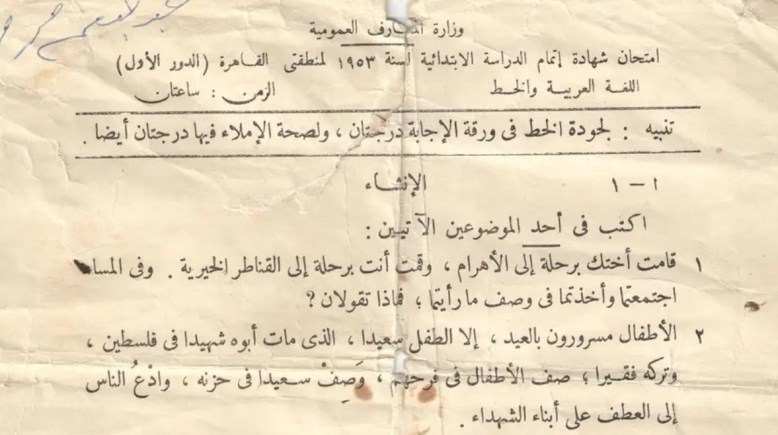 وزارة المعارف العمومية
امتحان شهادة إتمام الدراسة الابتدائية لسنة ١٩٥٣ لمنطقتى القاهرة (الدور الأول)
اللغة العربية والخط الزمن : ساعتان
تنبيه : لجودة الخط فى ورقة الإجابة درجتان ، ولصحة الإملاء فيها درجتان أيضا .
١ – ١ الإنشاء
اكتب فى أحد الموضوعين الآتيين :
١ قامت أختك برحلة إلى الأهرام ، وقمت أنت برحلة إلى القناطر الخيرية . وفى المساء
اجتمعتما وأخذتما فى وصف ما رأيتما ؛ فماذا تقولان ؟
٢ الأطفال مسرورون بالعيد ، إلا الطفل سعيدا ، الذى مات أبوه شهيدا فى فلسطين ،
وتركه فقيرا ؛ صف الأطفال فى فرحهم ، وَصِفْ سعيدا فى حزنه ، وادْعُ الناس
إلى العطف على أبناء الشهداء .